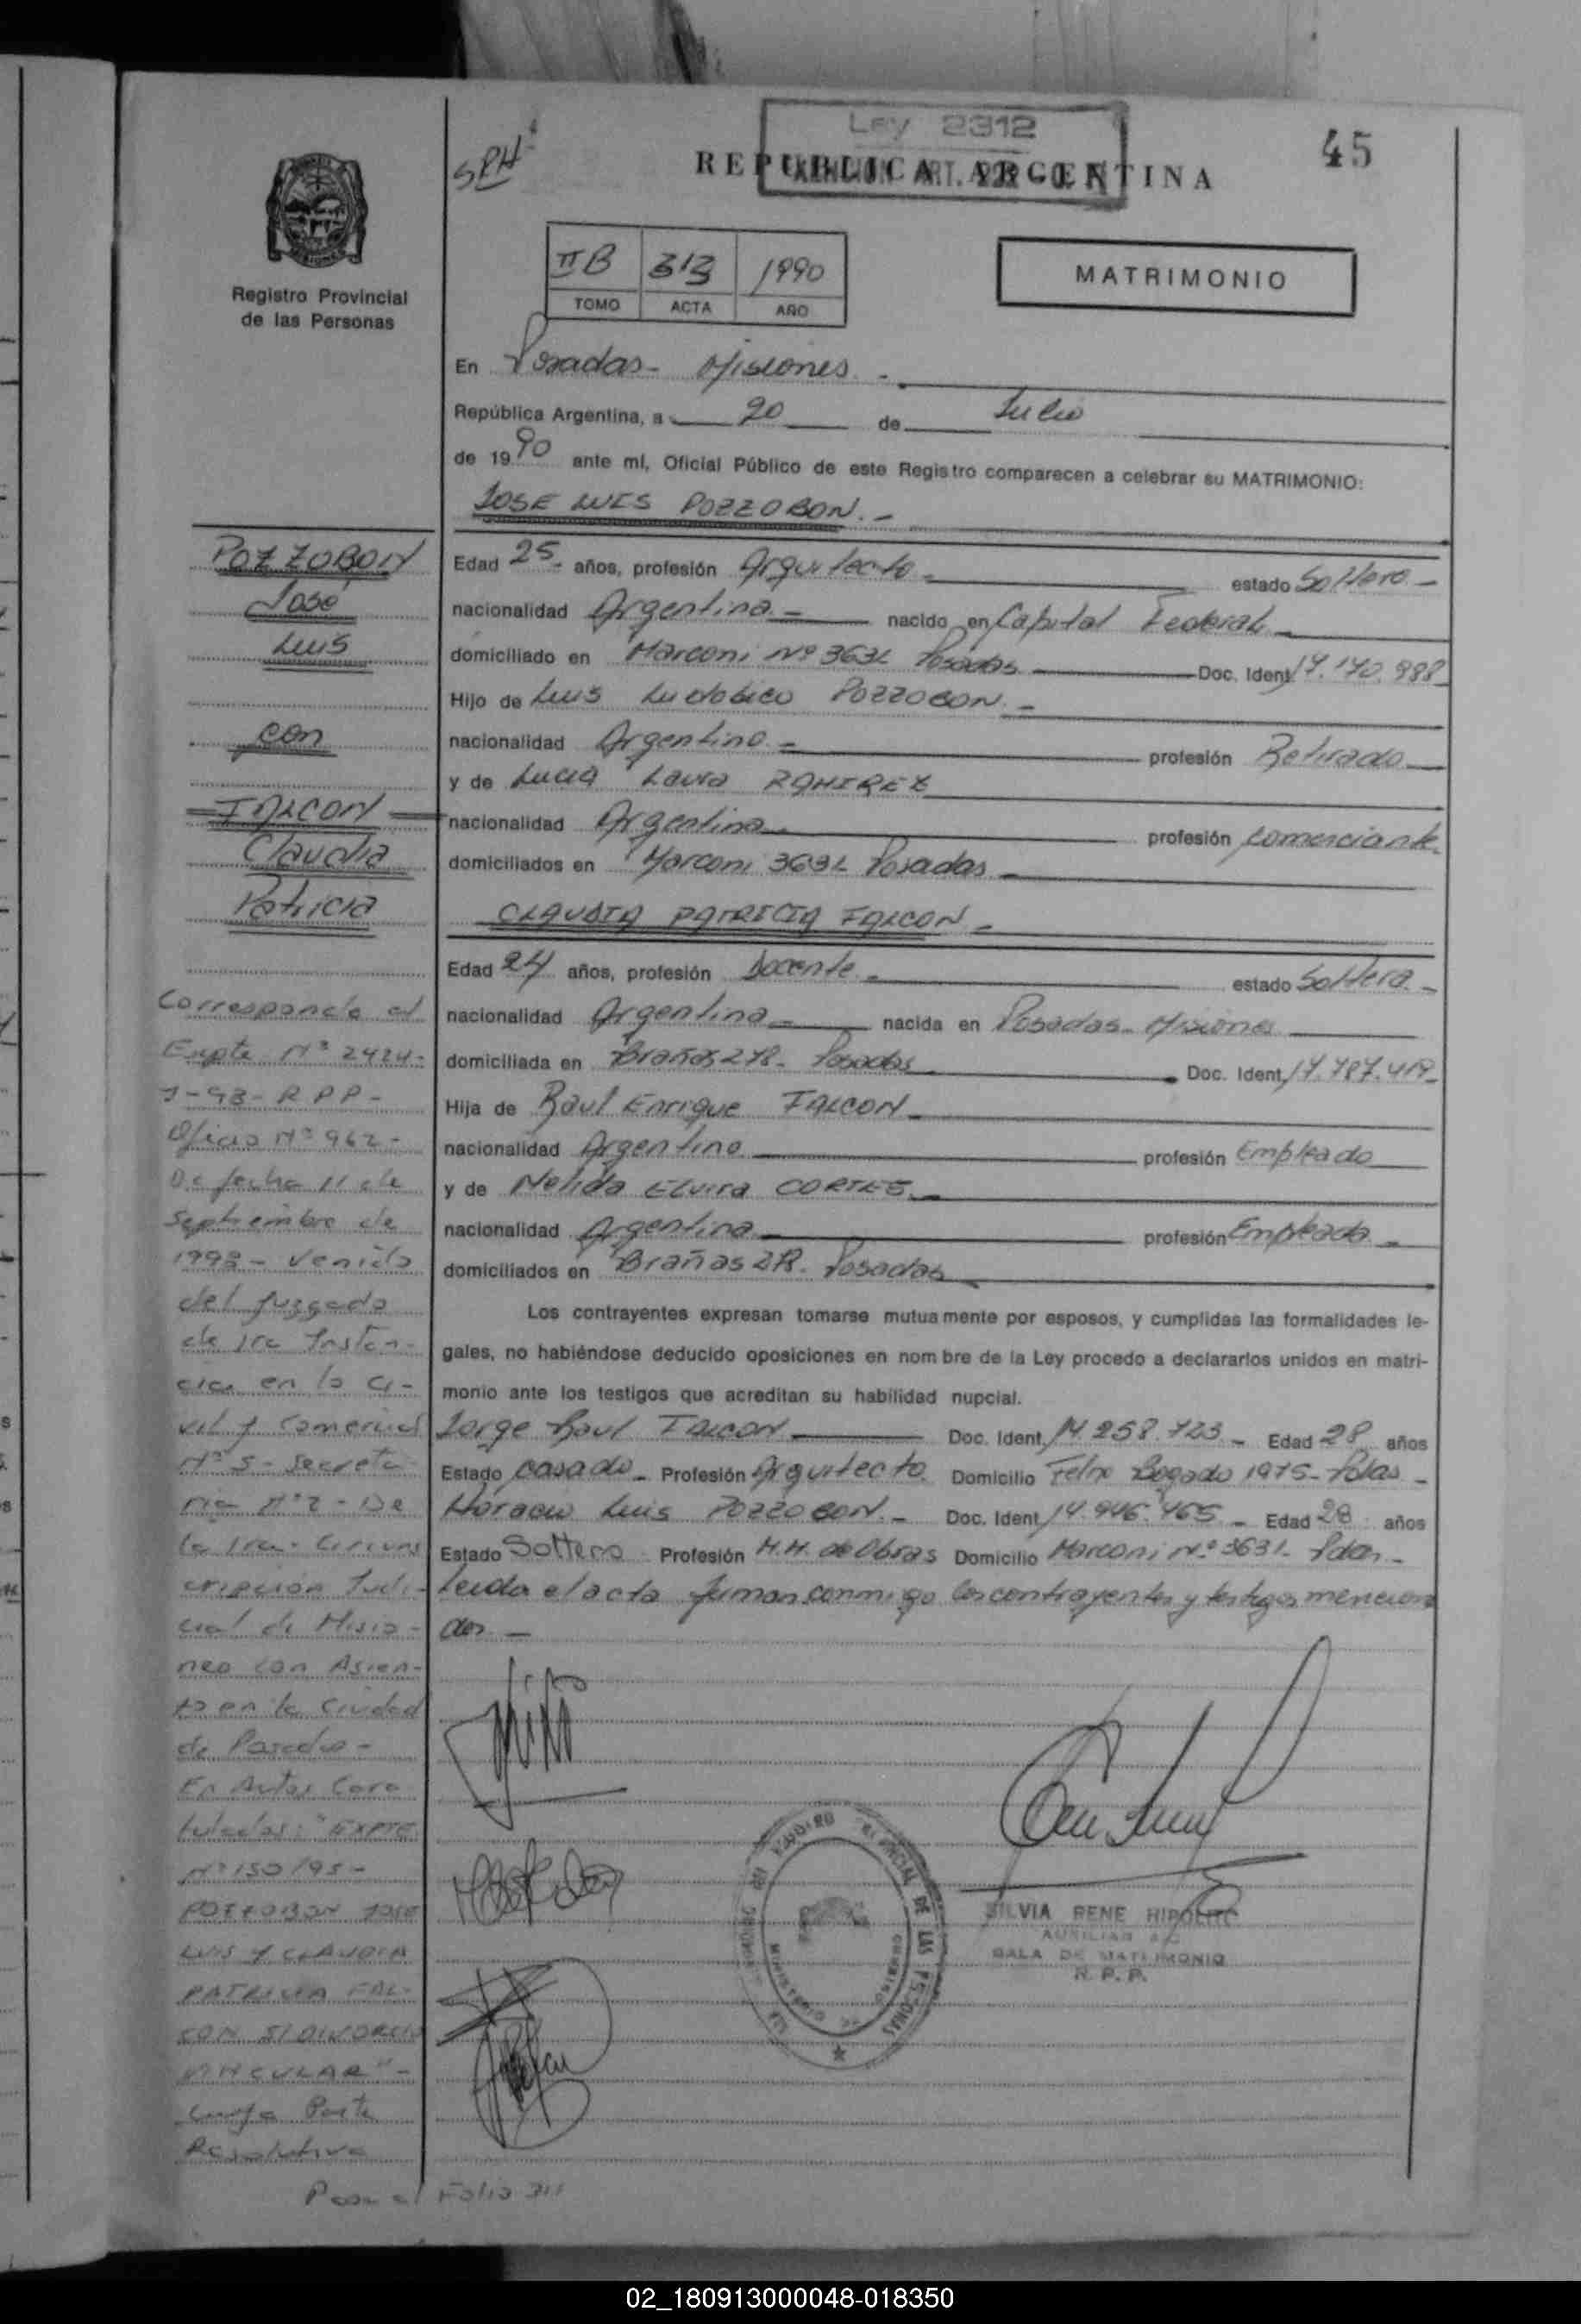 Ley 2312
45
SRH
REPUBLICA ARGENTINA
IIB 313 1990
TOMO ACTA AÑO
MATRIMONIO
Registro Provincial
de las Personas
En Posadas - Misiones -
República Argentina, a 20 de Julio
de 1990 ante mí, Oficial Público de este Registro comparecen a celebrar su MATRIMONIO:
JOSE LUIS POZZOBON. -
Edad 25 - años, profesión Arquitecto - estado Soltero -
nacionalidad Argentina - nacido en Capital Federal -
domiciliado en Marconi Nº 3631 Posadas Doc. Ident. 17.170.988
Hijo de Luis Ludobico POZZOBON. -
nacionalidad Argentino - profesión Retirado
y de Lucia Laura RAMIREZ
nacionalidad Argentina - profesión comerciante.
domiciliados en Marconi 3631 Posadas -
CLAUDIA PATRICIA FALCON -
Edad 24 años, profesión Docente - estado Soltera. -
nacionalidad Argentina - nacida en Posadas - Misiones
domiciliada en Brañas 278 - Posadas Doc. Ident. 17.787.419 -
Hija de Raul Enrique FALCON -
nacionalidad Argentino profesión Empleado
y de Nelida Elvira CORTES -
nacionalidad Argentina - profesión Empleada -
domiciliados en Brañas 278 - Posadas
Los contrayentes expresan tomarse mutuamente por esposos, y cumplidas las formalidades le-
gales, no habiéndose deducido oposiciones en nombre de la Ley procedo a declararlos unidos en matri-
monio ante los testigos que acreditan su habilidad nupcial.
Jorge Raul FALCON Doc. Ident. 14.258.723 - Edad 28 años
Estado casado - Profesión Arquitecto Domicilio Felix Bogado 1975 - Pdas -
Horacio Luis POZZOBON. - Doc. Ident. 14.946.465 - Edad 28 años
Estado Soltero Profesión M.M. de Obras Domicilio Marconi Nº 3631 - Pdas -
Leida el acta firman conmigo los contrayentes y testigos menciona
dos -
POZZOBON
José
Luis
con
FALCON
Claudia
Patricia
Corresponde al
Expte Nº 2424 -
J - 98 - R P P -
Oficio Nº 962 -
De fecha 11 de
Septiembre de
1998 - Venido
del Juzgado
de 1ra Instan-
cia en lo Ci-
vil y Comercial
Nº 5 - Secreta-
ria Nº 2 - De
la 1ra. Circuns
cripción Judi-
cial de Misio-
nes con Asien-
to en la Ciudad
de Posadas -
En Autos Cara
tulados: "EXPTE
Nº 150/95 -
POZZOBON JOSE
LUIS Y CLAUDIA
PATRICIA FAL-
CON S/ DIVORCIO
VINCULAR" -
Cuya Parte
Resolutiva
Pasa al Folio 311
SILVIA RENE HIPOLITO
AUXILIAR
SALA DE MATRIMONIO
R. P. P.
PROVINCIAL DE LAS PERSONAS
MINISTERIO DE GOBIERNO
02_180913000048-018350